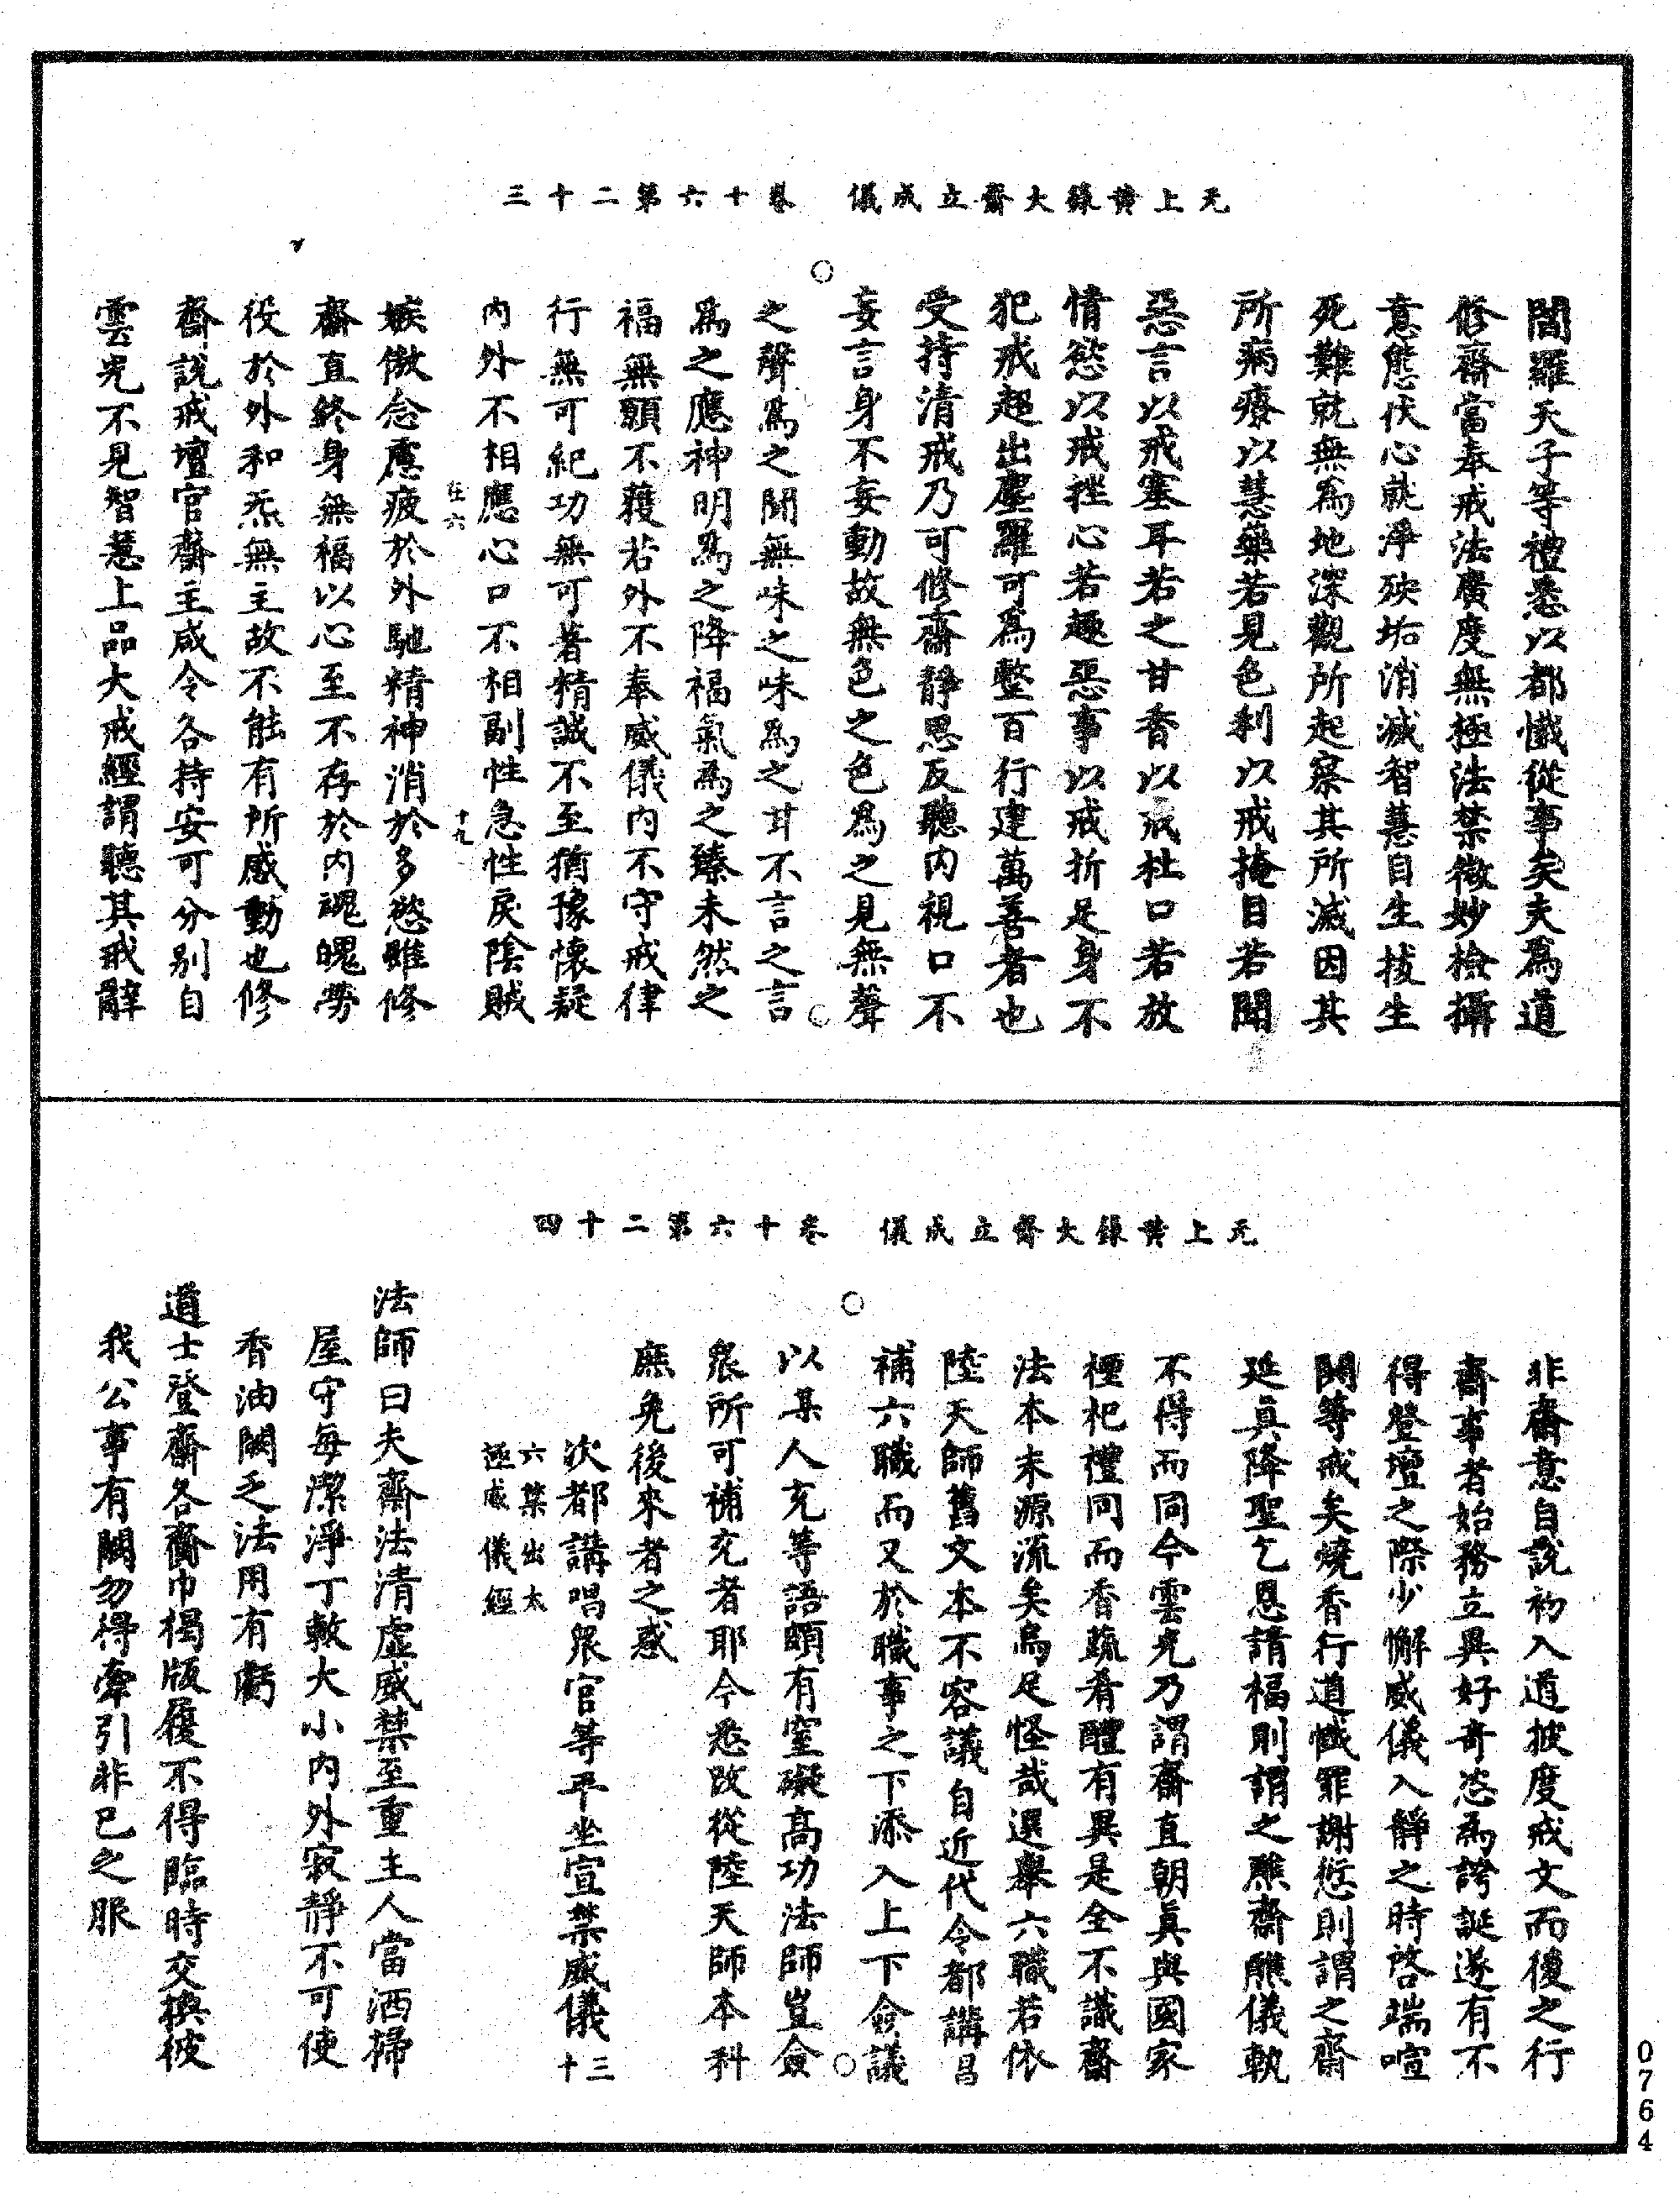 無上黃籙大齋立成儀　卷十六第二十三
閻羅天子等禮悉以都懺從事矣夫爲道
修齋當奉戒法廣度無極法禁微妙檢攝
意態伏心就淨殃垢消滅智慧自生拔生
死難就無爲地深觀所起察其所滅因其
所病療以慧藥若見色利以戒掩目若聞
惡言以戒塞耳若之甘香以戒杜口若放
情慾以戒挫心若趣惡事以戒折足身不
犯戒超出塵羅可爲整百行建萬善者也
受持清戒乃可修齋靜思反聽內視口不
妄言身不妄動故無色之色爲之見無聲
之聲爲之聞無味之味爲之甘不言之言
爲之應神明爲之降福氣爲之臻未然之
福無願不獲若外不奉威儀內不守戒律
行無可紀功無可著精誠不至猶豫懷疑
內外不相應心口不相副性急性戾陰賊
在六　十九
嫉傲念慮疲於外馳精神消於多慾雖修
齋直終身無福以心至不存於內魂魄勞
役於外和炁無主故不能有所感動也修
齋說戒壇官齋主咸令各持安可分別自
雲光不見智慧上品大戒經謂聽其戒辭
無上黃籙大齋立成儀　卷十六第二十四
非齋意自說初入道披度戒文而後之行
齋事者始務立異好奇恣爲誇誕遂有不
得登壇之際少懈威儀入靜之時啓端喧
鬪等戒矣燒香行道懺罪謝愆則謂之齋
延眞降聖乞恩請福則謂之醮齋醮儀軌
不得而同今雲光乃謂齋直朝眞與國家
禋祀禮同而香蔬肴醴有異是全不識齋
法本末源流矣烏足怪哉選舉六職若依
陸天師舊文本不容議自近代令都講昌
補六職而又於職事之下添入上下僉議
以某人充等語頗有窒礙高功法師豈僉
衆所可補充者耶今悉改從陸天師本科
庶免後來者之惑
次都講唱衆官等平坐宣禁威儀三十
六禁出太
極威儀經
法師曰夫齋法清虛威禁至重主人當洒掃
屋守每潔淨丁敕大小內外寂靜不可使
香油闕乏法用有虧
道士登齋各齎巾褐版履不得臨時交換彼
我公事有闕勿得牽引非己之服
0764